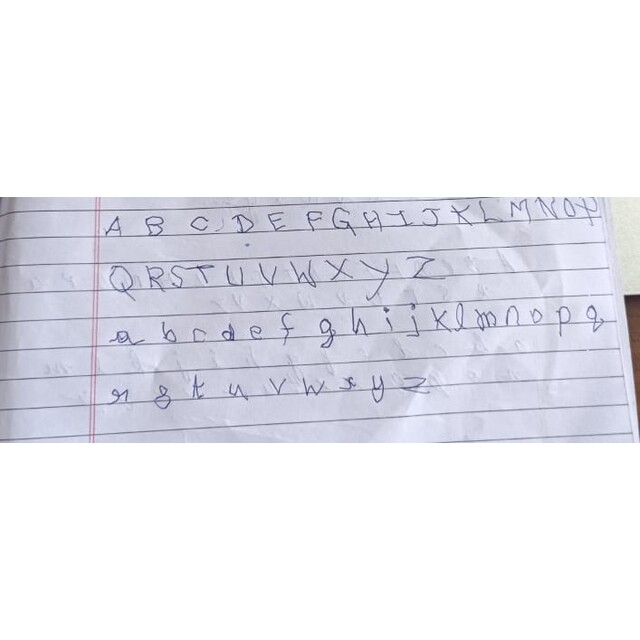 A B C D E F G H I J K L M N O P
Q R S T U V W X Y Z
a b c d e f g h i j k l m n o p q
r s t u v w x y z